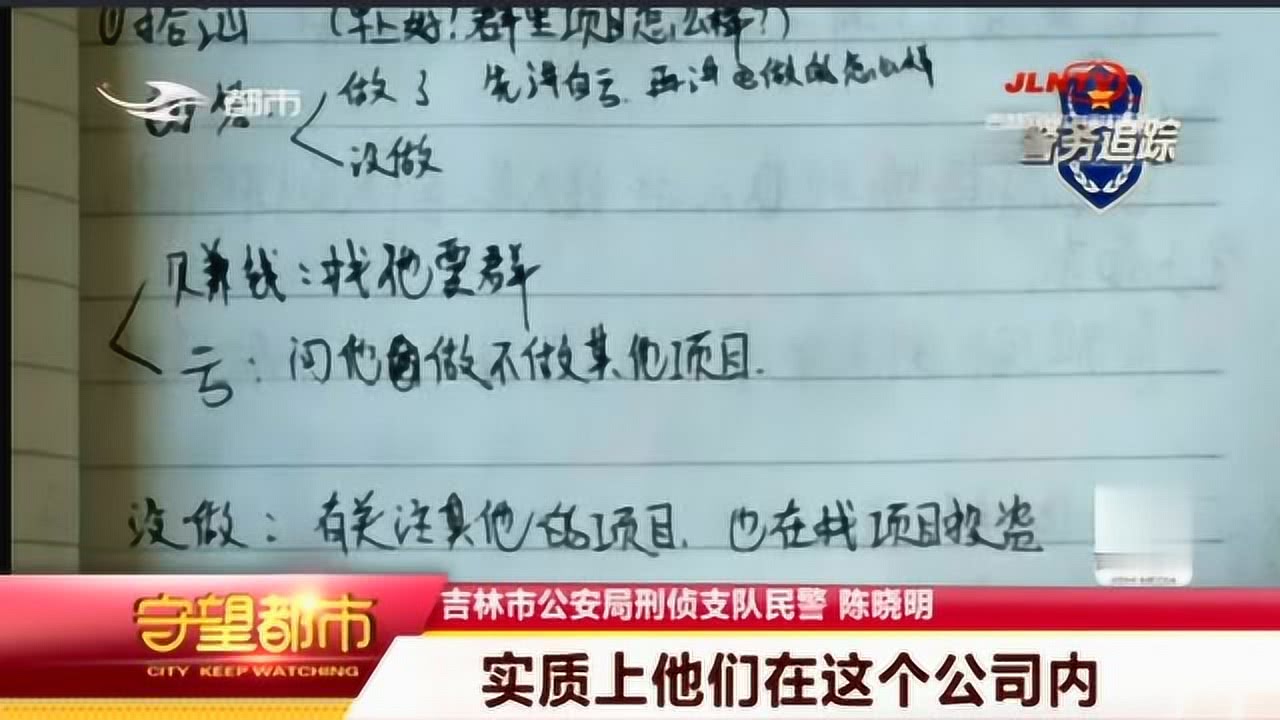 (早上好！群里项目怎么样？)
都市
做了 先说自亏，再说也做的怎么样
没做
JLNTV
警务追踪
赚钱：找他要群
亏：问他做不做其他项目.
没做：有关注其他的项目，也在找项目投资
守望都市
CITY KEEP WATCHING
吉林市公安局刑侦支队民警 陈晓明
实质上他们在这个公司内